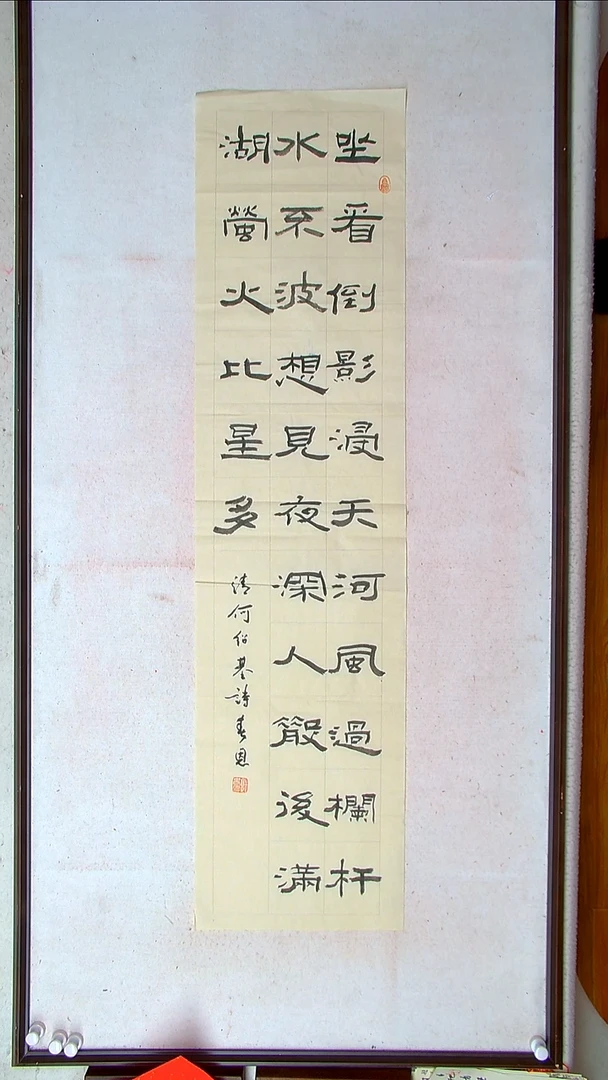 坐看倒影浸天河風過欄杆
水不波想見夜深人散後滿
湖螢火比星多
清何紹基詩春恩